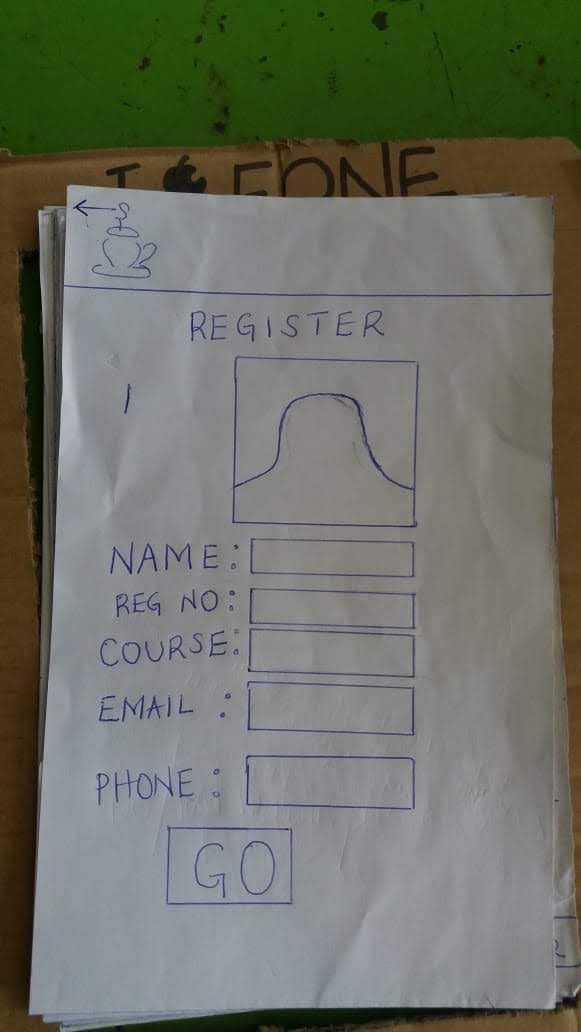 I FONE
REGISTER
NAME:
REG NO:
COURSE:
EMAIL :
PHONE :
GO